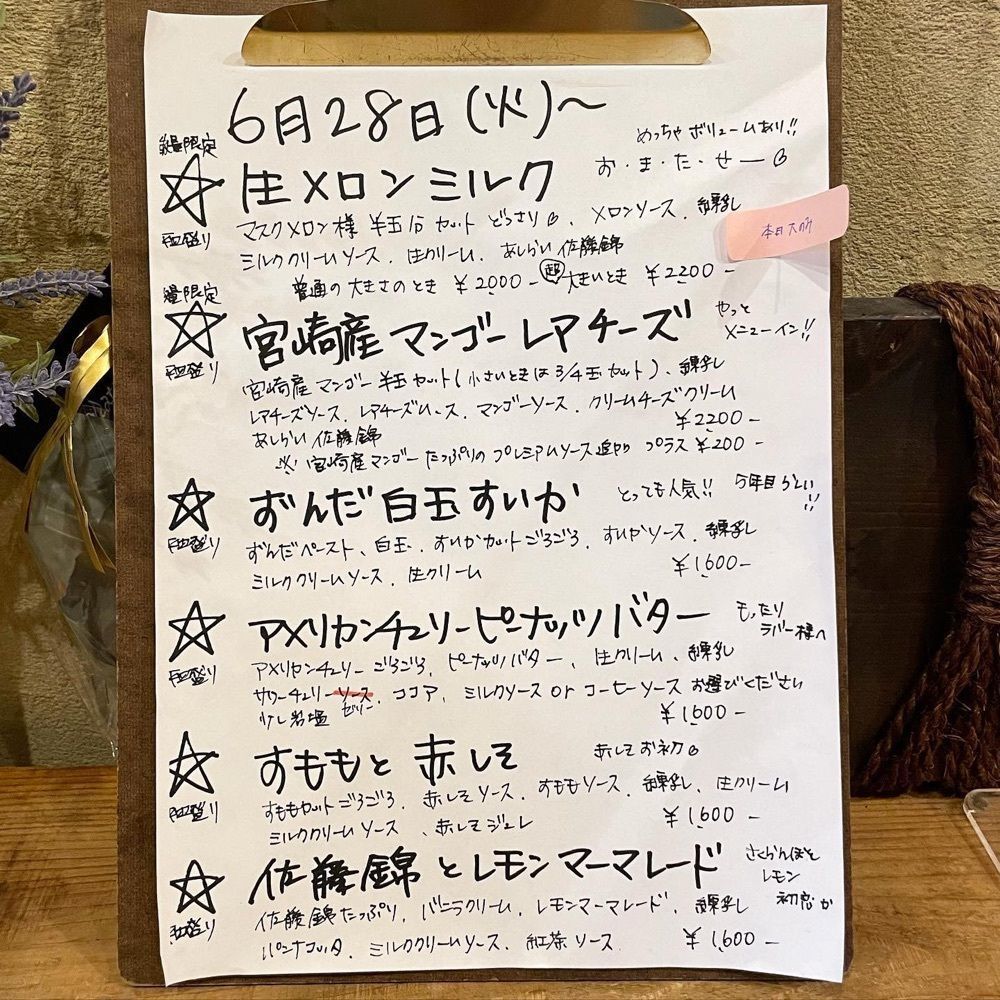 6月28日(火)〜
数量限定
めっちゃボリュームあり!!
お・ま・た・せー
生メロンミルク
皿盛り
マスクメロン様 半玉分カットどっさり、メロンソース、練乳
本日大のみ
ミルククリームソース、生クリーム、あしらい佐藤錦
普通の大きさのとき ¥2,000- 超大きいとき ¥2,200-
数量限定
宮崎産マンゴーレアチーズ
やっと
メニューイン!!
皿盛り
宮崎産マンゴー半玉カット(小さいときは3/4玉カット)、練乳
レアチーズソース、レアチーズムース、マンゴーソース、クリームチーズクリーム
あしらい佐藤錦
¥2,200-
※宮崎産マンゴーたっぷりのプレミアムソース追加り プラス¥200-
ずんだ白玉すいか
とっても人気!!
皿盛り
ずんだペースト、白玉、すいかカットごろごろ、すいかソース、練乳
ミルククリームソース、生クリーム
¥1,600-
アメリカンチェリーピーナッツバター
もったり
ラバー様へ
皿盛り
アメリカンチェリーごろごろ、ピーナッツバター、生クリーム、練乳
サワーチェリーソース、ココア、ミルクソース or コーヒーソースお選びください
ゼリー
少し岩塩
¥1,600-
すももと赤しそ
赤しそお初
皿盛り
すももカットごろごろ、赤しそソース、すももソース、練乳、生クリーム
ミルククリームソース、赤しそジュレ
¥1,600-
佐藤錦とレモンマーマレード
さくらんぼと
レモン
初恋か
皿盛り
佐藤錦たっぷり、バニラクリーム、レモンマーマレード、練乳
パンナコッタ、ミルククリームソース、紅茶ソース
¥1,600-